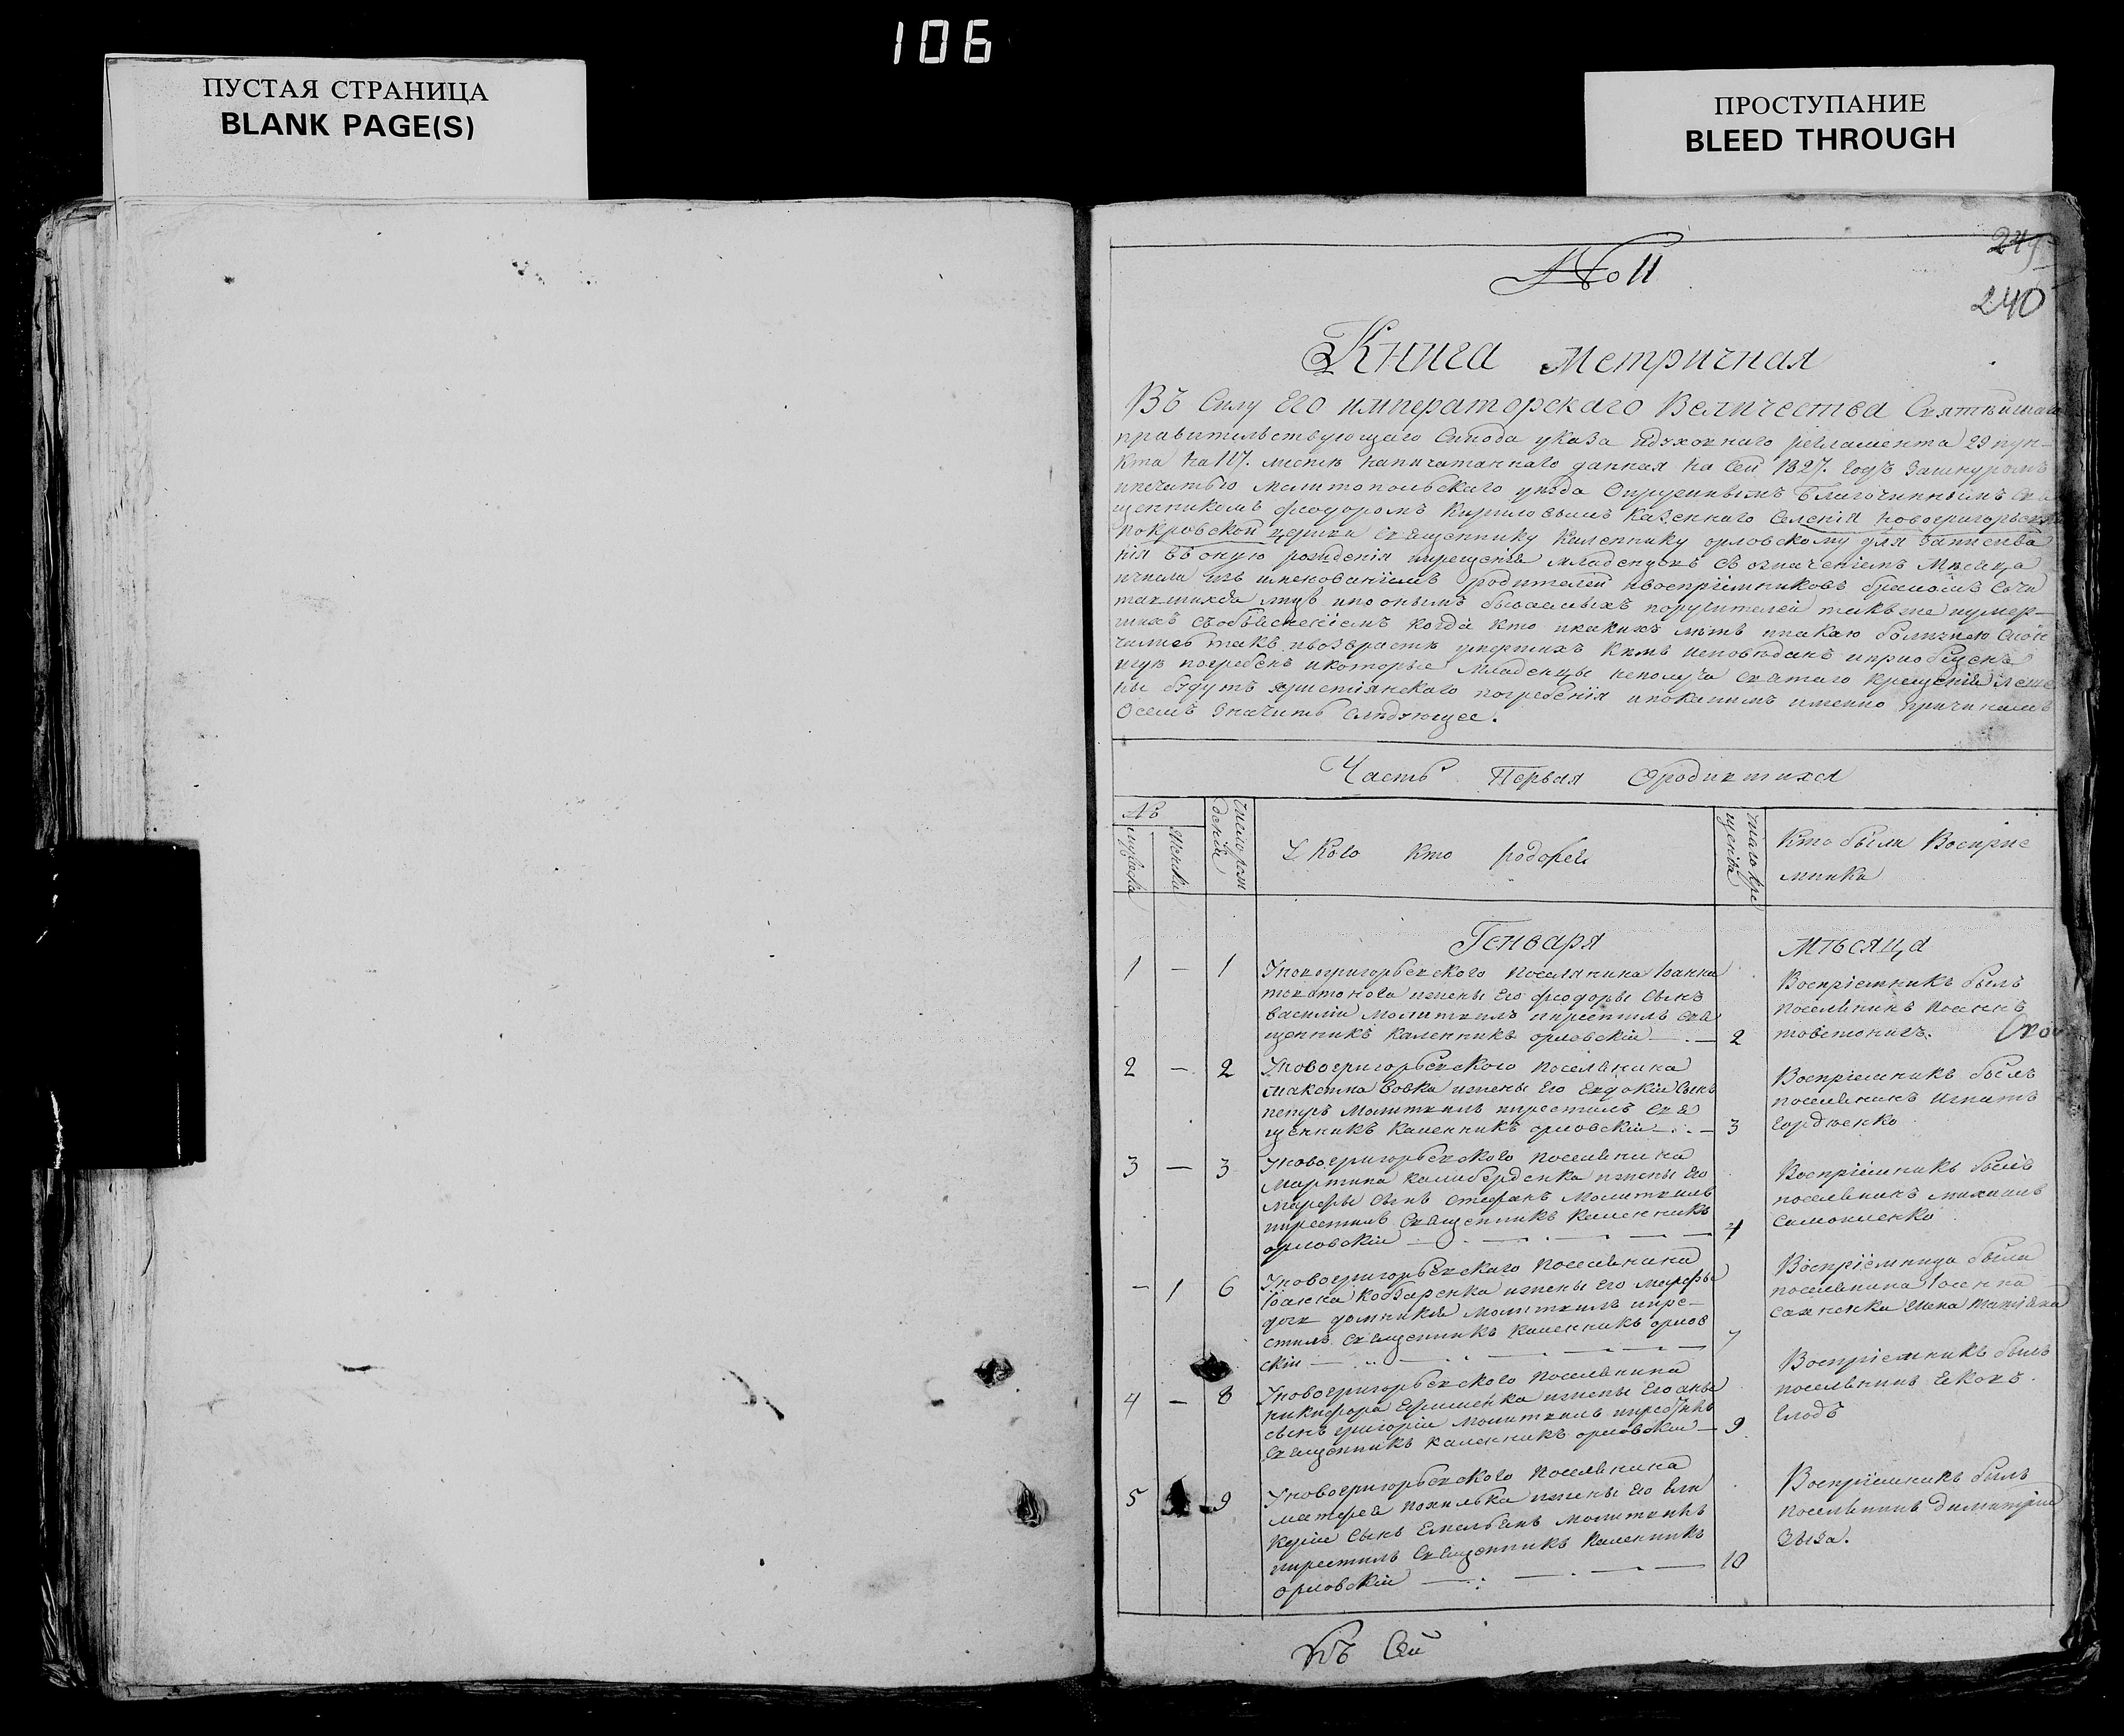 106
ПУСТАЯ СТРАНИЦА
BLANK PAGE(S)
ПРОСТУПАНИЕ
BLEED THROUGH
№ 11
245
240
Книга Метричная
Въ Силу Его императорскаго Величества Святѣйшаго
правительствующаго Синода указа идуховнаго регламента 29 пун-
кта на 117. листѣ напичатаннаго данная на Сей 1827. годъ Зашнуромъ
ипечатью Мелитопольскаго уезда Окружнымъ Благочиннымъ Свя
щенникомъ Феодоромъ Кириловымъ Казеннаго Селенія Новогригорьевки
Покровской церкви Священнику Каленнику орловскому для Записива
нія въ оную рожденія икрещенія младенцовъ Съ означеніемъ Мѣсяца
ичисла изъ имянованіемъ родителей ивоспріемниковъ бракомъ Соче
тавшихся лицъ ипо онымъ бывшихъ поручителей такъже иумер-
шихъ Съобъясненіемъ когда кто икакихъ лѣтъ икакою болѣзнею Скон
чались такъ ивозврастѣ умершихъ кѣмъ исповѣданъ иприобщенъ
игдѣ погребенъ икоторые Младенцы неполуча святаго крещенія
ны будутъ христіянскаго погребенія ипокакимъ именно причинамъ
Осемъ Значитъ Слѣдующее.
Часть Первая Ородившихся
№
мужеска
женска
число рож
денія
У Кого кто родился
число кре
щенія
Кто были Восприе
мники
Генваря
Мѣсяца
1 — 1 Уновогригорьевского Поселянина Іоанна
товстонога ижены Его Феодоры Сынъ
василій Молитвилъ икрестилъ Свя
щенникъ Каленникъ орловскій — 2
Воспріемникъ былъ
поселянинъ
товстоногъ.
2 — 2 Уновогригорьевского поселянина
Максима Вовка ижены Его Евдокіи Сынъ
петръ Молитвилъ икрестилъ Свя
щенникъ Каленникъ орловскій — 3
Воспріемникъ былъ
поселянинъ Игнатъ
Гордіенко
3 — 3 Уновогригорьевского Поселянина
Мартина Калиберденка ижены Его
Марфы Сынъ Стефанъ Молитвилъ
икрестилъ Священникъ Каленникъ
орловскій — 4
Воспріемникъ былъ
поселянинъ михаилъ
Самойленко
— 1 6 Уновогригорьевскаго Поселянина
Іоанна Кобзаренка ижены Его Марфы
дочь домникія Молитвилъ икре-
стилъ Священникъ Каленникъ орлов
скій — 7
Воспріемница была
поселянина
Сахненка жена
4 — 8 Уновогригорьевского Поселянина
никифора Ефименка ижены Его анны
сынъ григорій Молитвилъ икрестилъ
Священникъ Каленникъ орловскій — 9
Воспріемникъ былъ
поселянинъ Яковъ
5 9 Уновогригорьевского Поселянина
матфея Похилька ижены Его Гли
керіи Сынъ Емельянъ Молитвилъ
икрестилъ Священникъ Каленникъ
орловскій — 10
Воспріемникъ былъ
Поселянинъ димитрій
Зюза.
Къ Сей